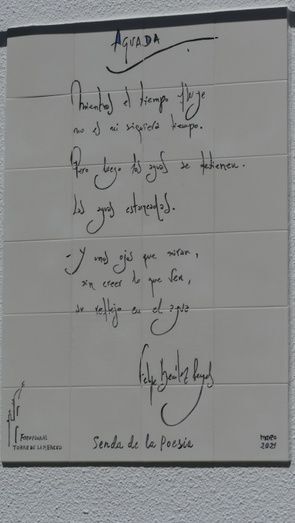 AGUADA
Mientras el tiempo fluye
no es ni siquiera tiempo.
Pero luego las aguas se detienen.
Las aguas estancadas.
- Y unos ojos que miran,
sin creer lo que ven,
su reflejo en el agua
Felipe Benítez Reyes
FOTOVIVAS
TORRE DE LOMBREDO
Senda de la Poesía
MAYO
2021